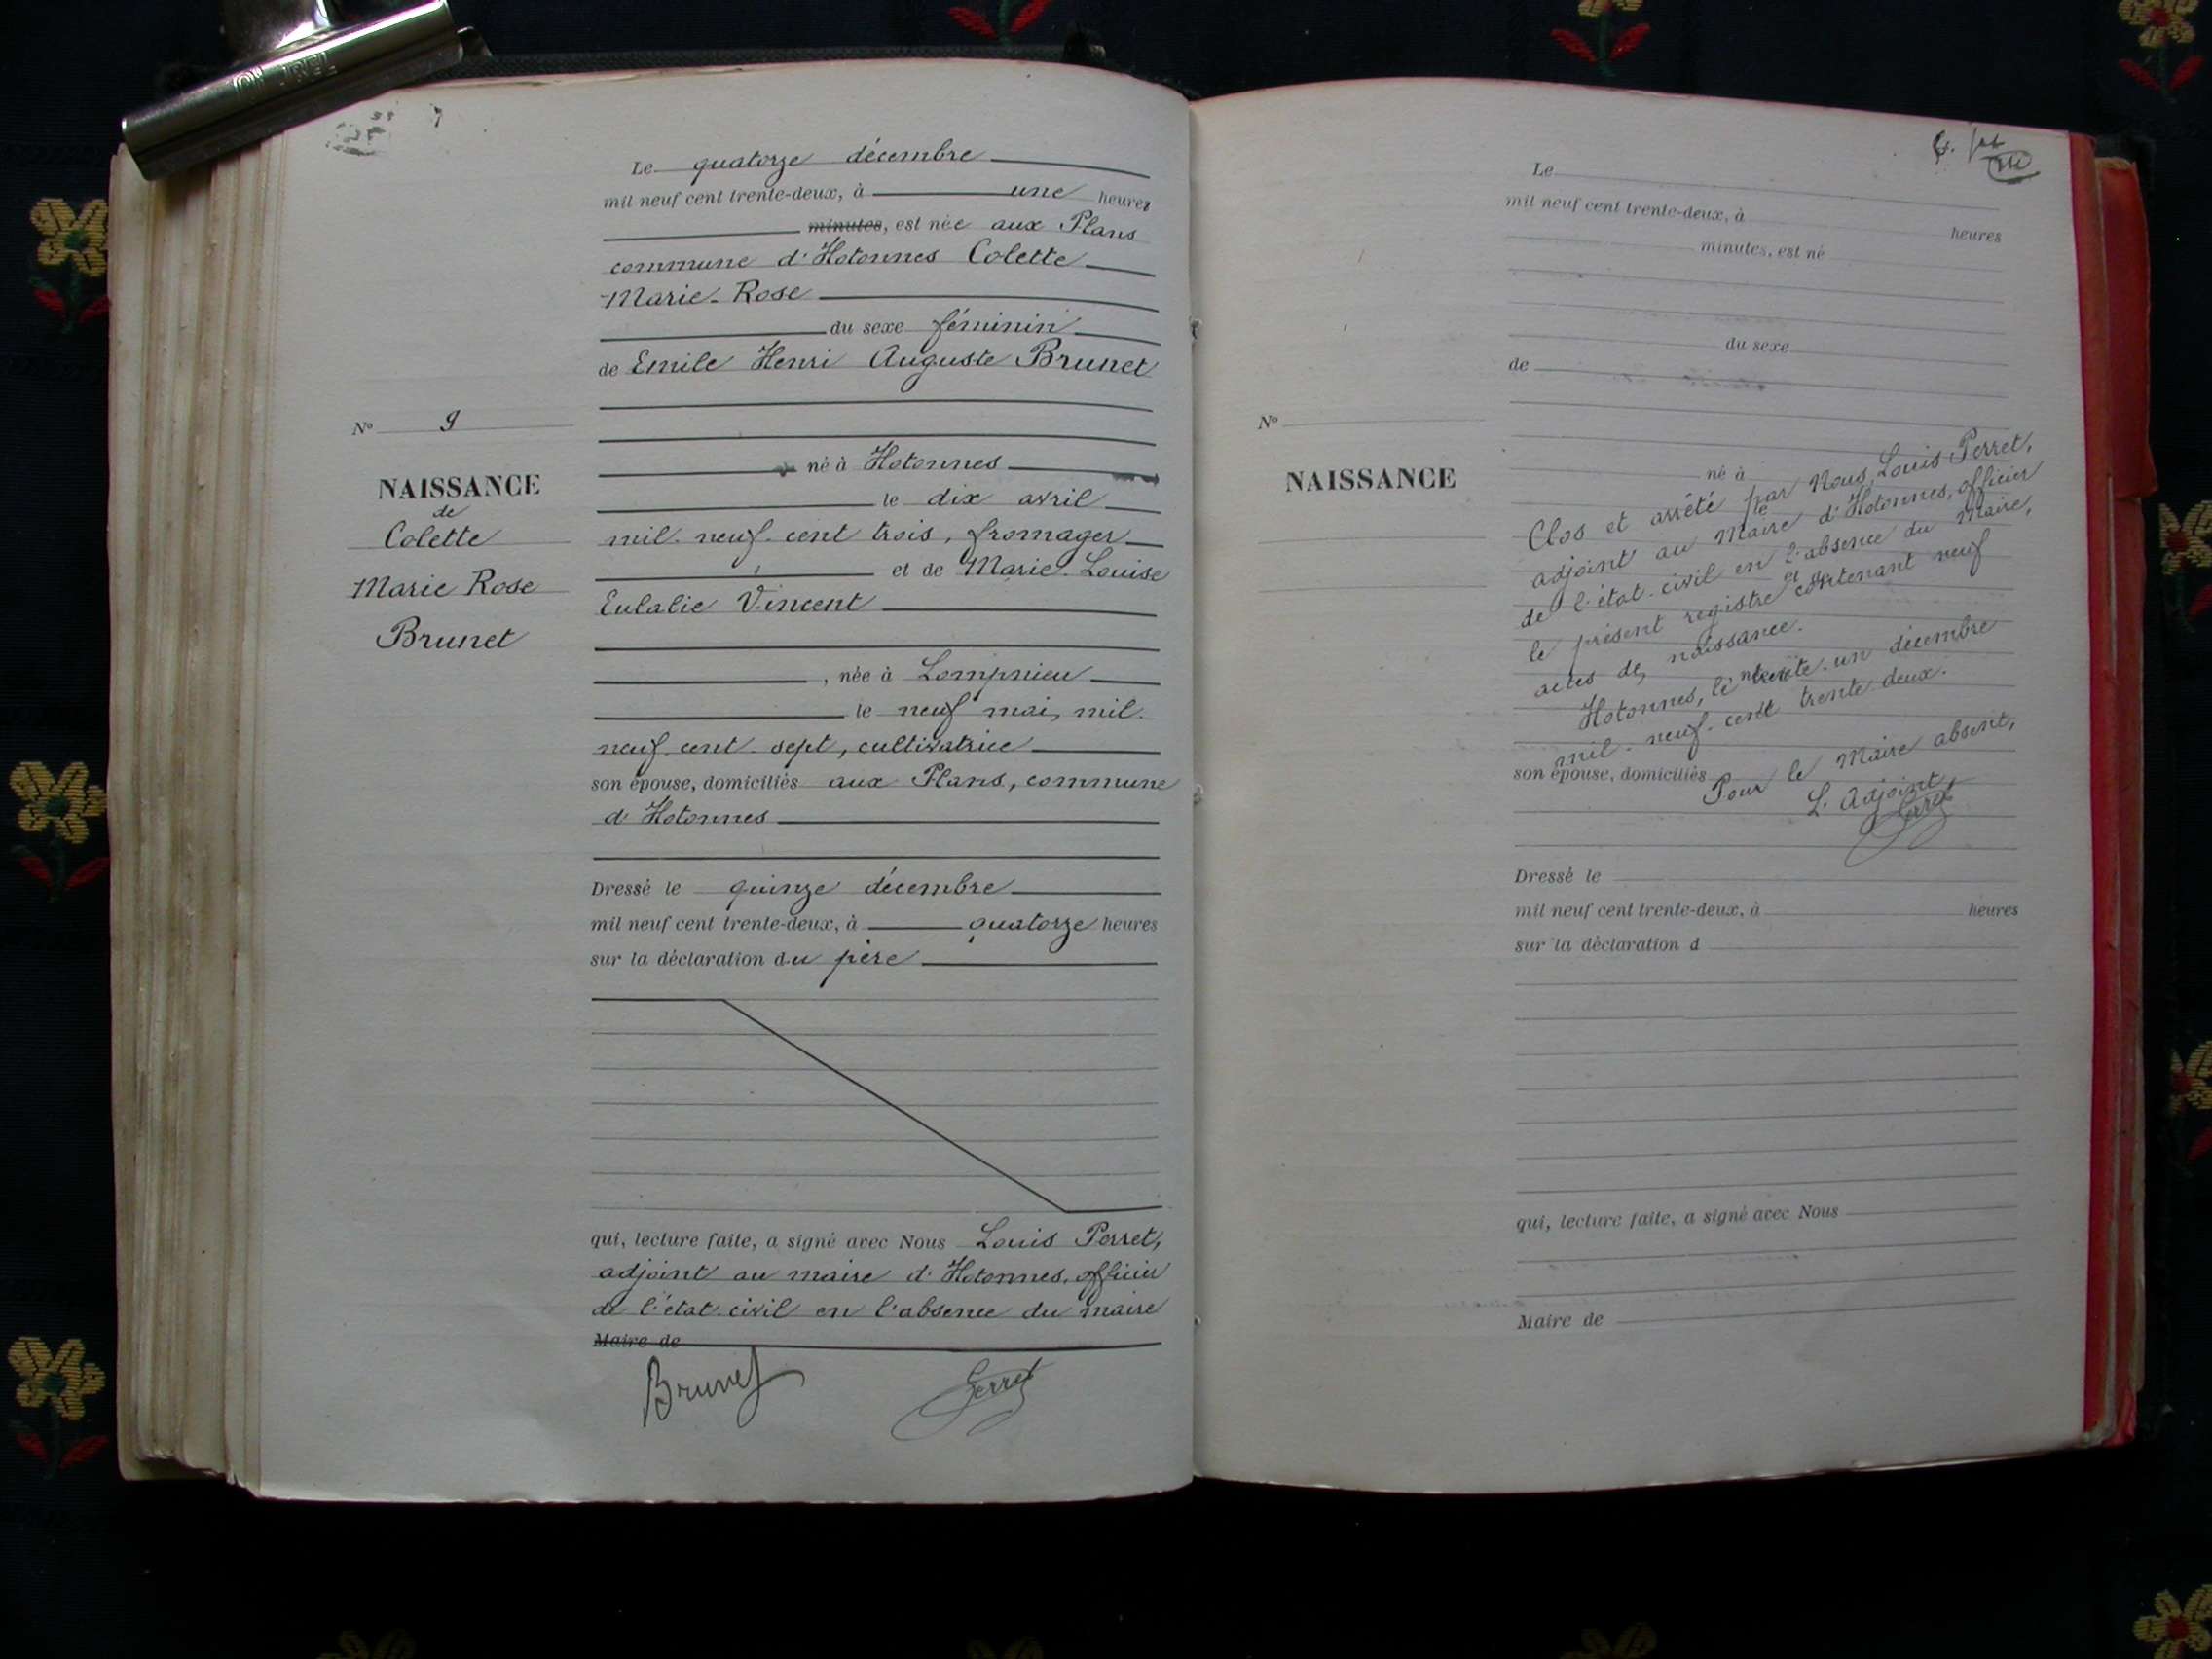 Le quatorze décembre
mil neuf cent trente-deux, à une heures
minutes, est née aux Plans
commune d'Hotonnes Colette
Marie-Rose
du sexe féminin
de Emile Henri Auguste Brunet
N° 9
né à Hotonnes
NAISSANCE
le dix avril
de
Colette
mil-neuf-cent trois, fromager
et de Marie-Louise
Marie Rose
Eulalie Vincent
Brunet
, née à Lompnieu
le neuf mai, mil-
neuf-cent-sept, cultivatrice
son épouse, domiciliés aux Plans, commune
d'Hotonnes
Dressé le quinze décembre
mil neuf cent trente-deux, à quatorze heures
sur la déclaration du père
qui, lecture faite, a signé avec Nous Louis Perret,
adjoint au maire d'Hotonnes, officier
de l'état-civil en l'absence du maire
Maire de
Brunet Perret
Le
mil neuf cent trente-deux, à
heures
minutes, est né
du sexe
de
N°
NAISSANCE
né à
Clos et arrêté par Nous, Louis Perret,
adjoint au Maire d'Hotonnes, officier
de l'état-civil en l'absence du Maire,
le présent registre contenant neuf
actes de naissance.
Hotonnes, le trente-un décembre
mil-neuf-cent trente deux.
son épouse, domiciliés
Pour le Maire absent,
L'Adjoint
Perret
Dressé le
mil neuf cent trente-deux, à heures
sur la déclaration d
qui, lecture faite, a signé avec Nous
Maire de